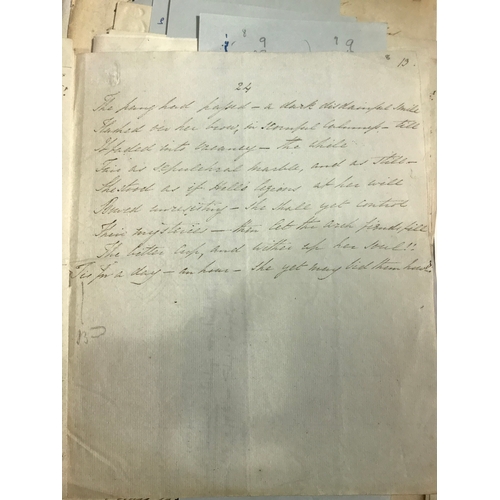 9
9
13.
24
The pang had passed – a dark disdainful smile
Flashed o'er her brow, in scornful calmness – till
It faded into vacancy – the while
Fair as sepulchral marble, and as still –
She stood as if Hell's legions at her will
Bowed unresisting – she shall yet control
Their mysteries – then let the arch fiends fill
The bitter cup, and wither up her soul!!
Tis for a day – an hour – she yet may bid them